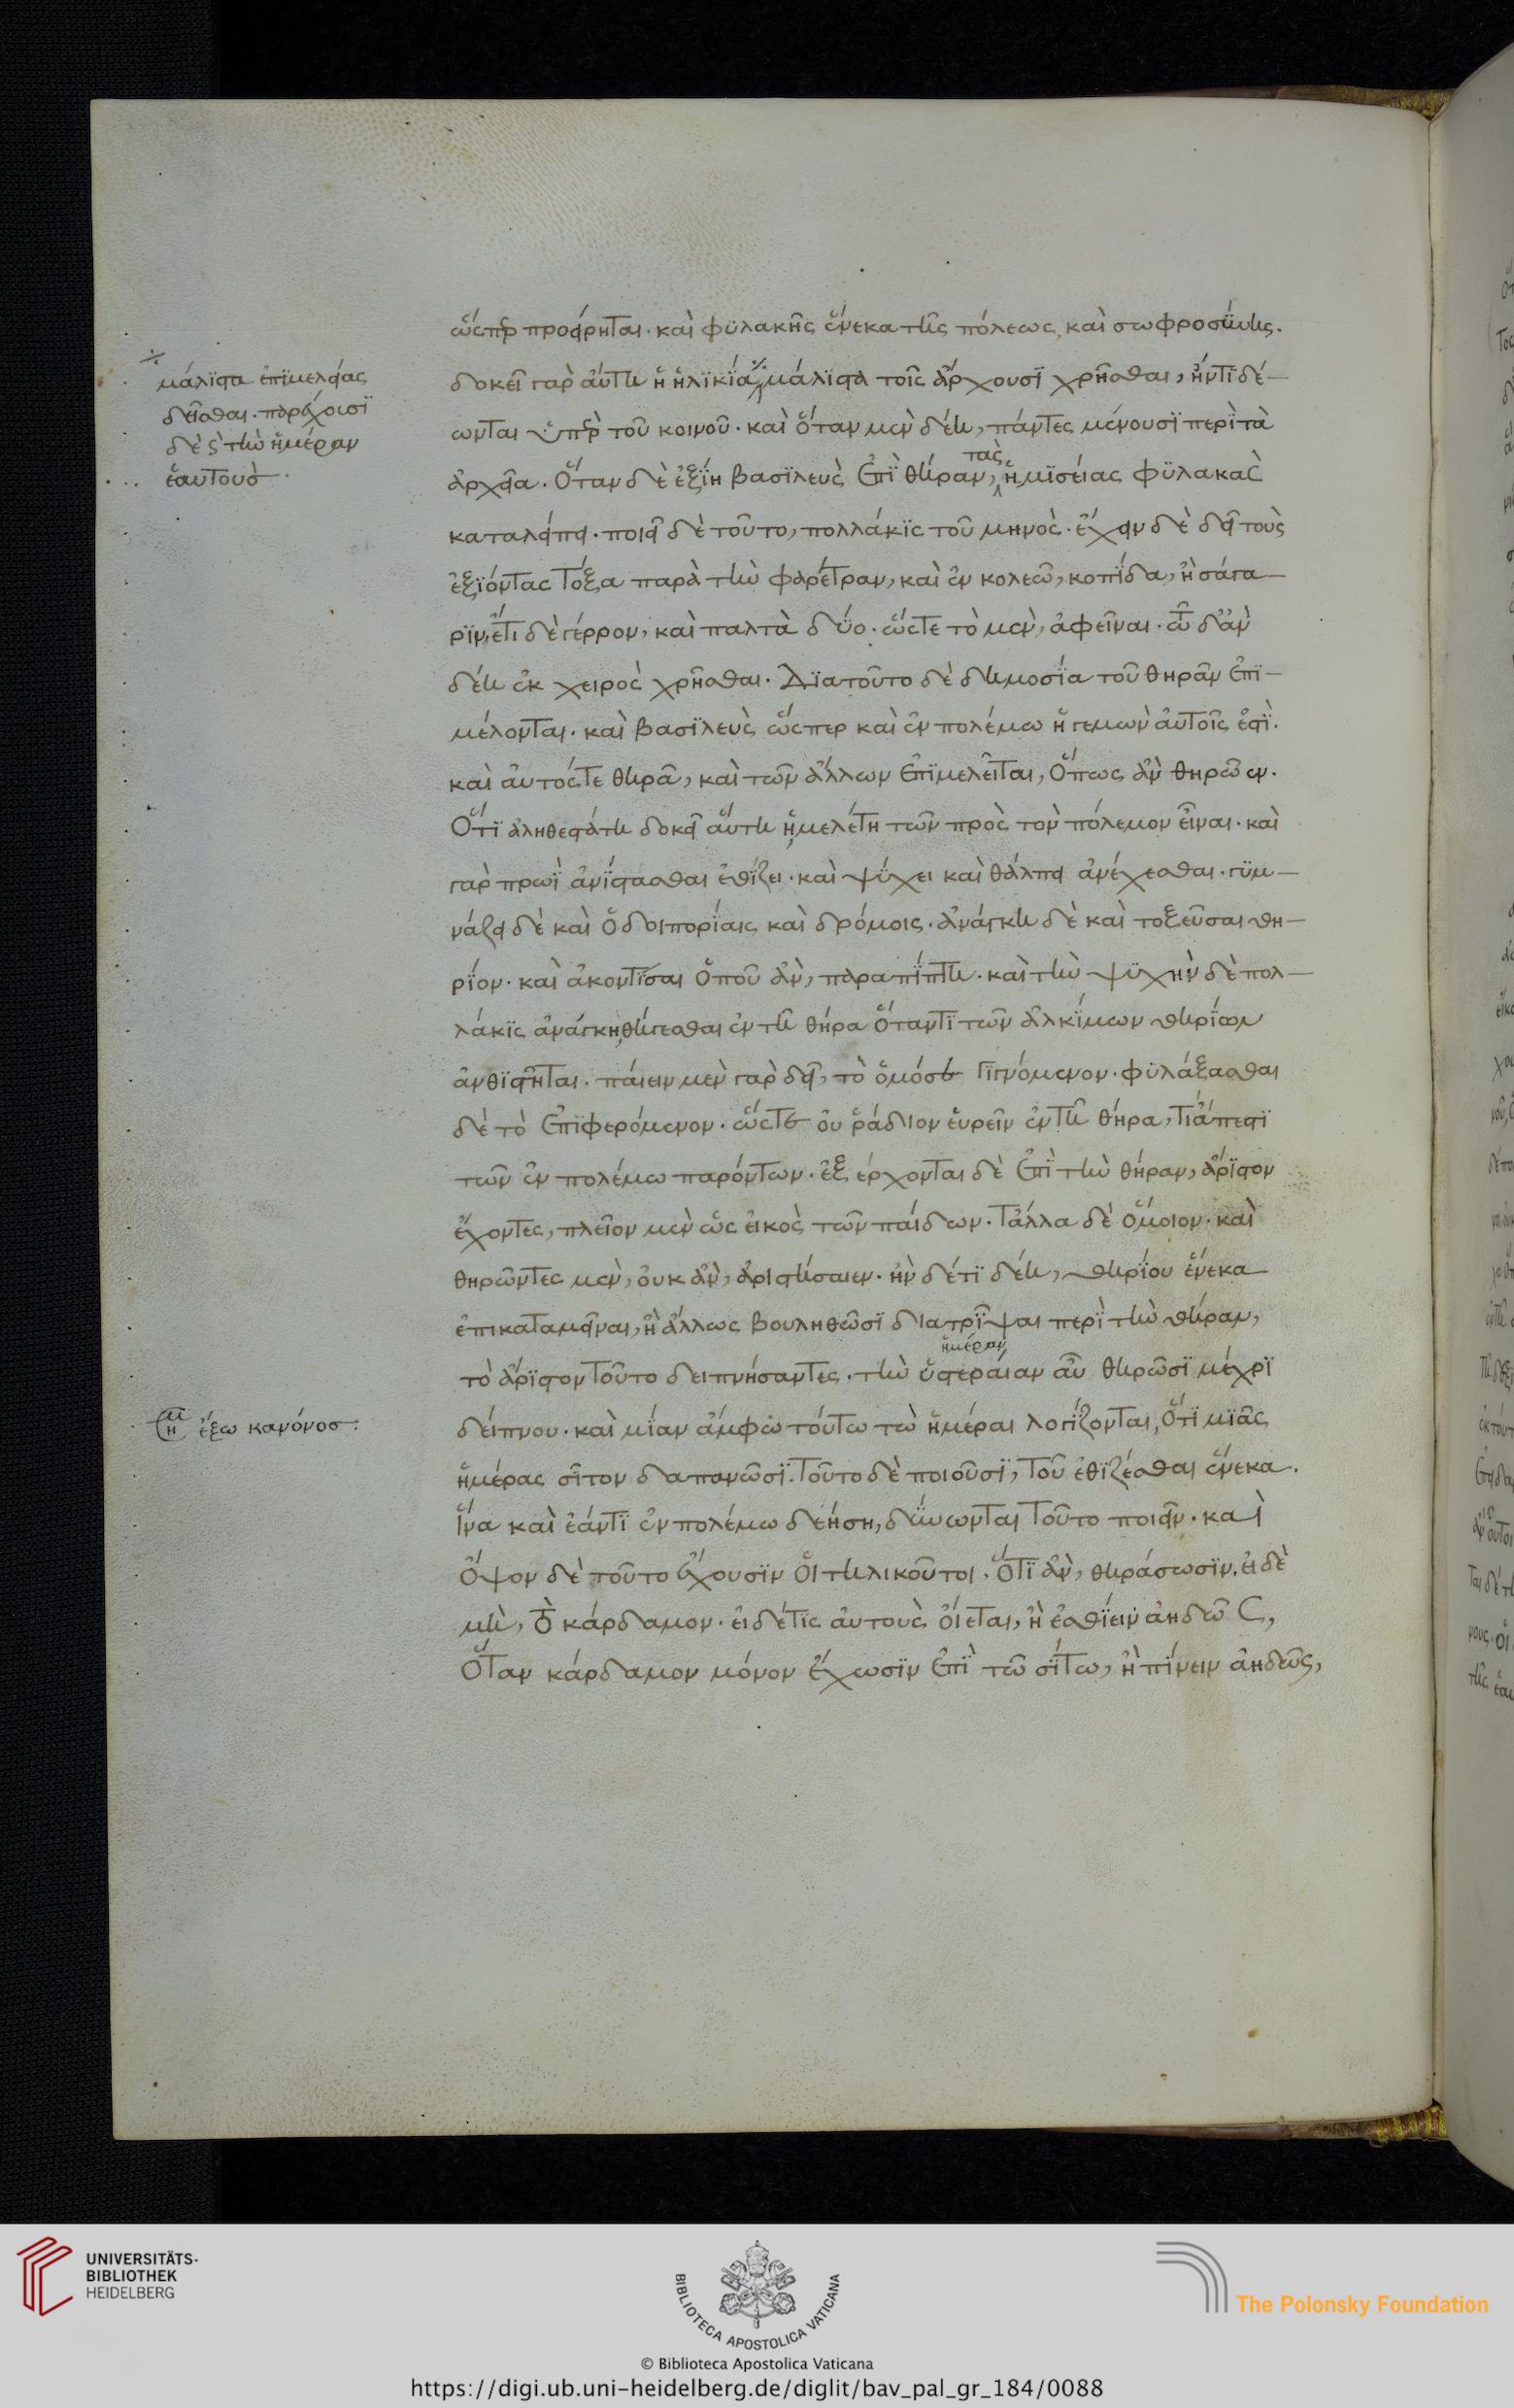 μάλιστα ἐπιμελείας
δεῖσθαι. παρέχουσι
δὲ ϛ τὴν ἡμέραν
ἑαυτοὺσ
ὥσπερ προείρηται. καὶ φϋλακῆς ἕνεκα τῆς πόλεως, καὶ σωφροσύνης.
δοκεῖ γαρ αὕτη ἡ ἡλϊκία μάλϊστα τοῖς ἄρχουσϊ χρῆσθαι, ἤντϊ δέ–
ωνται ὑπὲρ τοῦ κοινοῦ. καὶ ὅταν μεν δέη, πάντες μένουσϊ περὶ τὰ
ἀρχεῖα. Ὅταν δὲ ἐξΐη βασϊλευς ἐπὶ θήραν, τὰς ἡμϊσείας φϋλακας
καταλείπει. ποιεῖ δὲ τοῦτο, πολλάκϊς τοῦ μηνος. ἔχειν δὲ δεῖ τοὺς
ἐξϊόντας τόξα παρὰ τὴν φαρέτραν, καὶ ἐν κολεῶ, κοπίδα, ἢ σάγα–
ρϊν, ἔτι δὲ γέρρον, καὶ παλτὰ δύο. ὥστε τὸ μεν, ἀφεῖναι. τῶ δ' ἂν
δέη ἐκ χειρος χρῆσθαι. Δϊατοῦτο δὲ δημοσία τοῦ θηρᾶν ἐπϊ–
μέλονται. καὶ βασϊλευς ὥσπερ καὶ ἐν πολέμω ἡγεμων αὐτοῖς ἐστϊ.
καὶ αὐτόςτε θηρᾶ, καὶ τῶν ἄλλων ἐπϊμελεῖται, ὅπως ἂν θηρῶεν.
Ὅτϊ ἀληθεστάτη δοκεῖ αὕτη ἡ μελέτη τῶν προς τον πόλεμον εἶναι. καὶ
γαρ πρωῒ ἀνΐστασθαι ἐθΐζει. καὶ ψύχει καὶ θάλπει ἀνέχεσθαι. γϋμ–
νάζει δὲ καὶ ὁδοιπορίαις καὶ δρόμοις. ἀνάγκη δὲ καὶ τοξεῦσαι θη–
ρίον. καὶ ἀκοντίσαι ὅπου ἂν, παραπίπτη. καὶ τὴν ψϋχην δὲ πολ–
λάκϊς ἀνάγκη θήγεσθαι ἐν τῆ θήρα ὅταντϊ τῶν ἀλκίμων θηρίων
ἀνθϊστῆται. παίειν μεν γαρ δεῖ, τὸ ὁμόσε γϊγνόμενον. φϋλάξασθαι
δὲ τὸ ἐπϊφερόμενον. ὥστε οὐ ῥάδιον εὑρεῖν ἐν τῆ θήρα, τί ἄπεστϊ
τῶν ἐν πολέμω παρόντων. ἐξέρχονται δὲ ἐπὶ τὴν θήραν, ἄρϊστον
ἔχοντες, πλεῖον μεν ὡς εἰκος τῶν παίδων. τἄλλα δὲ ὅμοιον. καὶ
θηρῶντες μεν, οὐκ ἂν, ἀριστήσαιεν. ἢν δέτϊ δέη, θηρίου ἕνεκα
ἐπικαταμεῖναι, ἢ ἄλλως βουληθῶσϊ διατρῖψαι περὶ τὴν θήραν,
τὸ ἄρϊστον τοῦτο δειπνήσαντες. τὴν ὑστεραίαν ἡμέραν αὖ θηρῶσϊ μέχρϊ
(μη) ἔξω κανόνοσ:
δείπνου. καὶ μίαν ἄμφω τούτω τὼ ἡμέραι λογίζονται, ὅτϊ μϊᾶς
ἡμέρας σῖτον δαπανῶσϊ. τοῦτο δὲ ποιοῦσϊ, τοῦ ἐθϊζέσθαι ἕνεκα.
ἵνα καὶ ἐάντϊ ἐν πολέμω δεήση, δύνωνται τοῦτο ποιεῖν. καὶ
ὄψον δὲ τοῦτο ἔχουσϊν οἱ τηλικοῦτοι, ὅτϊ ἂν, θηράσωσϊν. εἰ δὲ
μὴ, τὸ κάρδαμον. εἰ δέτϊς αὐτους οἴεται, ἢ ἐσθίειν ἀηδῶς,
ὅταν κάρδαμον μόνον ἔχωσϊν ἐπὶ τῶ σίτω, ἢ πίνειν ἀηδῶς,
UNIVERSITÄTS-
BIBLIOTHEK
HEIDELBERG
BIBLIOTECA APOSTOLICA VATICANA
The Polonsky Foundation
© Biblioteca Apostolica Vaticana
https://digi.ub.uni-heidelberg.de/diglit/bav_pal_gr_184/0088